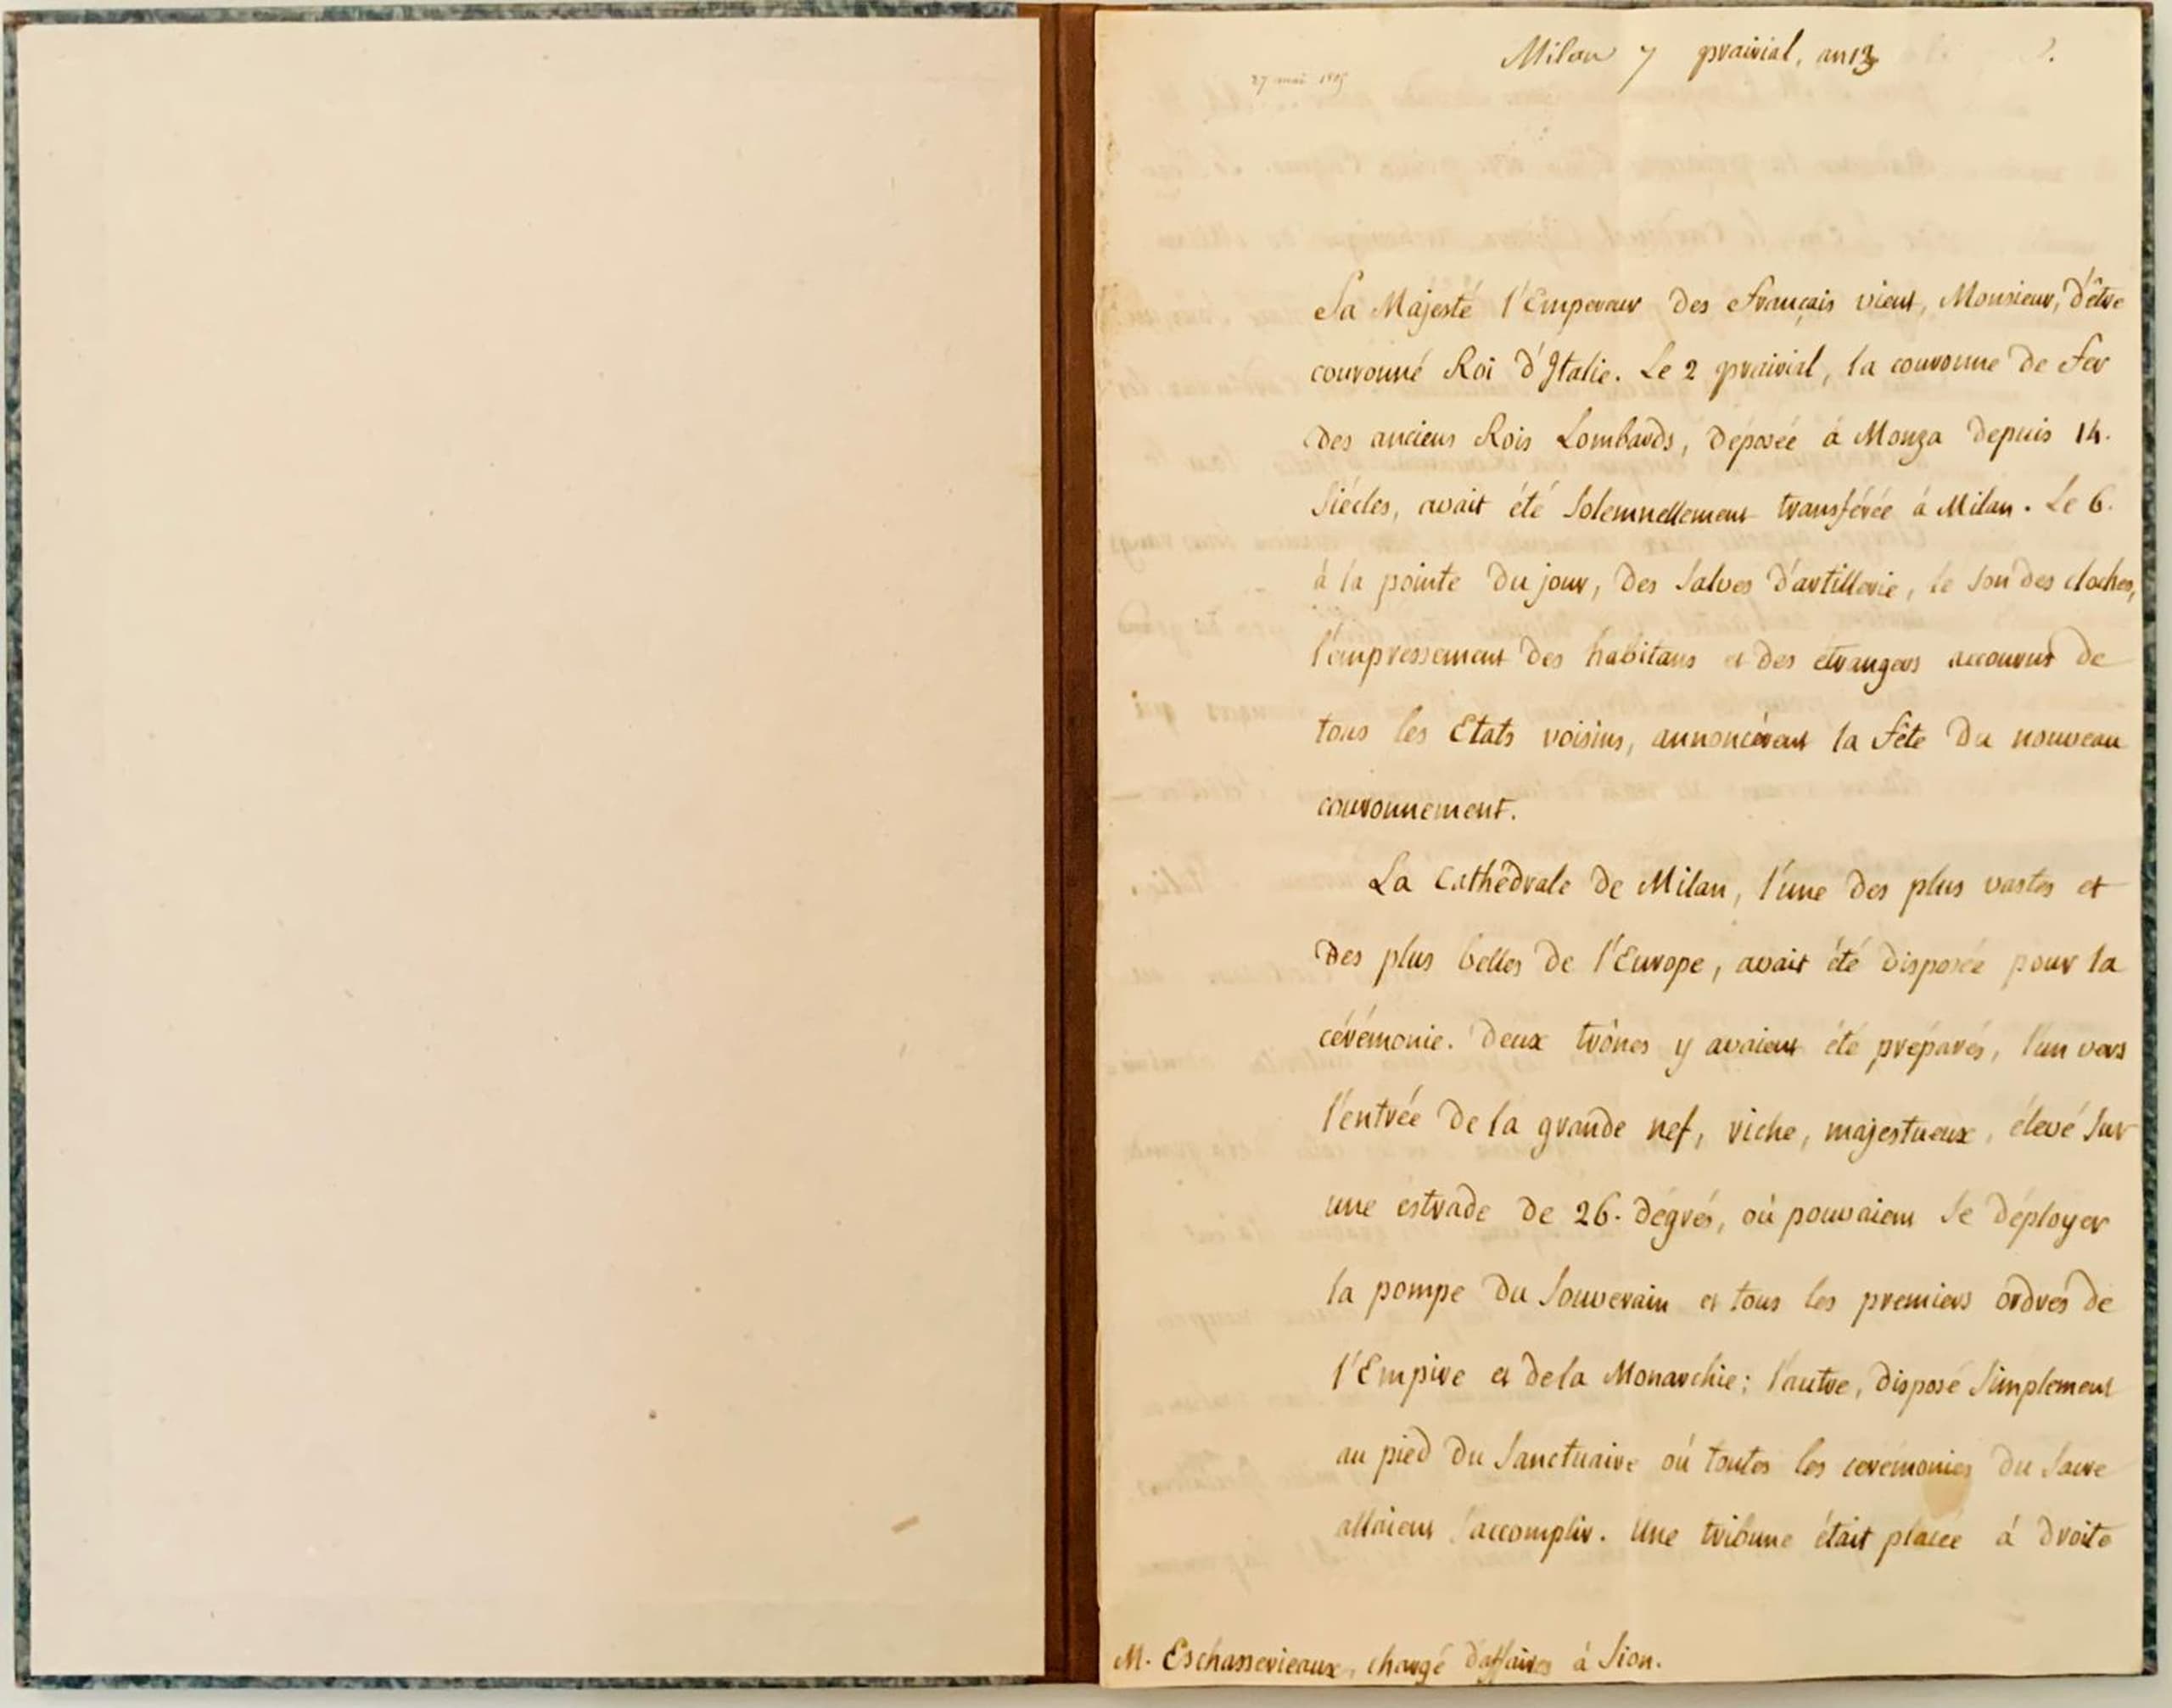 Milan 7 prairial, an 13
27 mai 1805
Sa Majesté l'Empereur des Français vient, Monsieur, d'être
couronné Roi d'Italie. Le 2 prairial, la couronne de fer
des anciens Rois Lombards, déposée à Monza depuis 14.
Siècles, avait été Solemnellement transférée à Milan. Le 6.
à la pointe du jour, des Salves d'artillerie, le Son des cloches,
l'empressement des habitans et des étrangers accourus de
tous les Etats voisins, annoncèrent la fête du nouveau
couronnement.
La Cathédrale de Milan, l'une des plus vastes et
des plus belles de l'Europe, avait été disposée pour la
cérémonie. Deux trônes y avaient été préparés, l'un vers
l'entrée de la grande nef, riche, majestueux, élevé Sur
une estrade de 26. dégrés, où pouvaient Se déployer
la pompe du Souverain et tous les premiers ordres de
l'Empire et de la Monarchie; l'autre, disposé Simplement
au pied du Sanctuaire où toutes les cérémonies du Sacre
allaient S'accomplir. Une tribune était placée à droite
M. Eschasserieaux, chargé d'affaires à Sion.